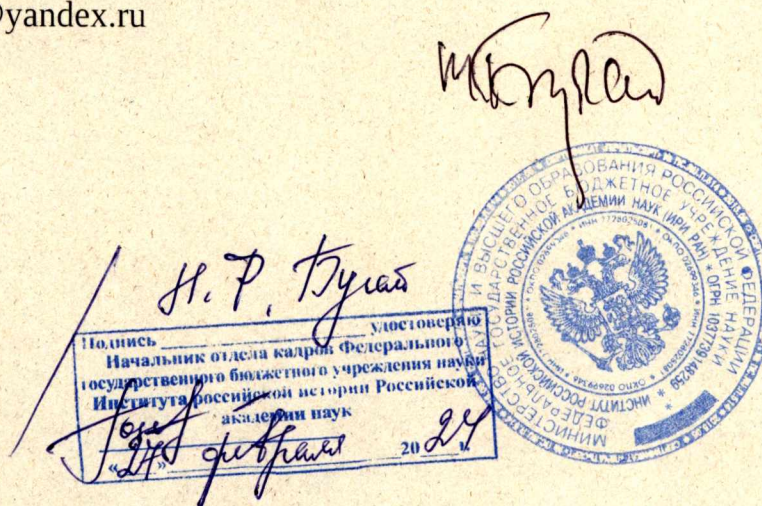 @yandex.ru
Н. Ф. Бугай
Подпись удостоверяю
Начальник отдела кадров Федерального
государственного бюджетного учреждения науки
Института российской истории Российской
академии наук
«27» февраля 2024 г.
МИНИСТЕРСТВО НАУКИ И ВЫСШЕГО ОБРАЗОВАНИЯ РОССИЙСКОЙ ФЕДЕРАЦИИ
ФЕДЕРАЛЬНОЕ ГОСУДАРСТВЕННОЕ БЮДЖЕТНОЕ УЧРЕЖДЕНИЕ НАУКИ
ИНСТИТУТ РОССИЙСКОЙ ИСТОРИИ РОССИЙСКОЙ АКАДЕМИИ НАУК (ИРИ РАН) * ОГРН 1037739148260 *